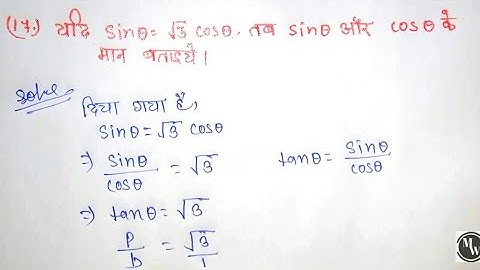 (17.) यदि sinθ = √3 cosθ, तब sinθ और cosθ के
मान बताइये।
Solve
दिया गया है,
sinθ = √3 cosθ
⇒ sinθ/cosθ = √3 tanθ = sinθ/cosθ
⇒ tanθ = √3
P/b = √3/1
MW